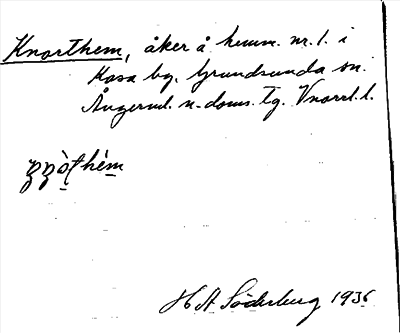 Knorthem, åker å hemm. nr. 1. i
Kasa by. Grundsunda sn.
Ångerml. n. doms. tg. Vnorrl. l.
H A Söderberg 1936